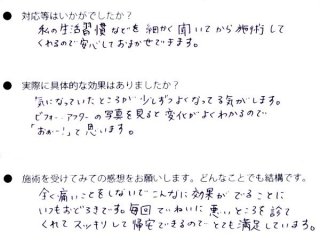 ● 対応等はいかがでしたか?
私の生活習慣などを細かく聞いてから施術して
くれるので安心しておまかせできます。
● 実際に具体的な効果はありましたか?
気になっていたところが少しずつよくなってる気がします。
ビフォー、アフターの写真を見ると変化がよくわかるので
「おぉー!」て思います。
● 施術を受けてみての感想をお願いします。どんなことでも結構です。
全く痛いことをしないでこんなに効果がでることに
いつもおどろきです。毎回ていねいに悪いところを診て
くれてスッキリして帰宅できるのでとても満足しています。